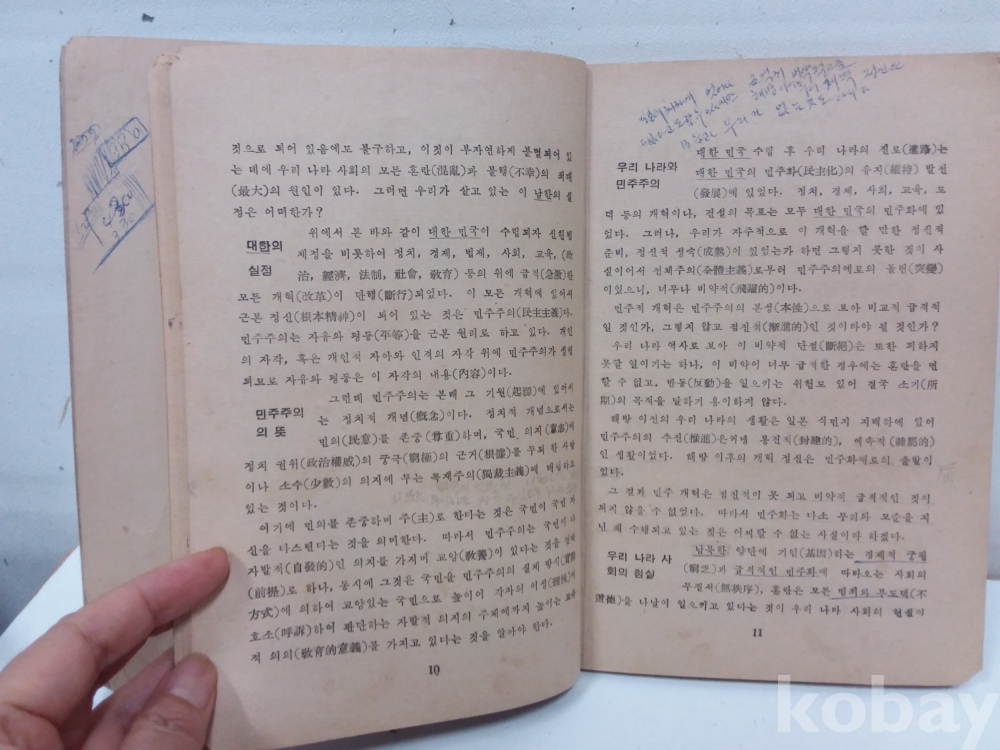 것으로 되어 있음에도 불구하고, 이것이 부자연하게 분렬되어 있
는 데에 우리 나라 사회의 모든 혼란(混亂)과 불행(不幸)의 최대
(最大)의 원인이 있다. 그러면 우리가 살고 있는 이 남한의 실
정은 어떠한가?
대한의
실정
위에서 본 바와 같이 대한 민국이 수립되자 신헌법
제정을 비롯하여 정치, 경제, 법제, 사회, 교육, (政
治, 經濟, 法制, 社會, 敎育) 등의 위에 급격(急激)한
모든 개혁(改革)이 단행(斷行)되었다. 이 모든 개혁에 있어서
근본 정신(根本精神)이 되어 있는 것은 민주주의(民主主義)다.
민주주의는 자유와 평등(平等)을 근본 원리로 하고 있다. 개인
의 자각, 혹은 개인적 자아와 인격의 자각 위에 민주주의가 성립
되므로 자유와 평등은 이 자각의 내용(內容)이다.
민주주의
의 뜻
그런데 민주주의는 본래 그 기원(起源)에 있어서
는 정치적 개념(槪念)이다. 정치적 개념으로서는
민의(民意)를 존중(尊重)하며, 국민 의지(意志)에
정치 권위(政治權威)의 궁극(窮極)의 근거(根據)를 두되 한 사람
이나 소수(少數)의 의지에 두는 독재주의(獨裁主義)에 대립하고
있는 것이다.
여기에 민의를 존중하며 주(主)로 한다는 것은 국민이 국민 자
신을 다스린다는 것을 의미한다. 따라서 민주주의는 국민이 다
자발적(自發的)인 의지를 가지며 교양(敎養)이 있다는 것을 전제
(前提)로 하나, 동시에 그것은 국민을 민주주의의 실제 방식(實際
方式)에 의하여 교양있는 국민으로 높이어 각자의 이성(理性)에
호소(呼訴)하여 판단하는 자발적 의지의 주체에까지 높이는 교육
적 의의(敎育的意義)를 가지고 있다는 것을 알아야 한다.
10
우리가 없는
우리 나라와
민주주의
대한 민국 수립 후 우리 나라의 진로(進路)는
대한 민국의 민주화(民主化)의 유지(維持) 발전
(發展)에 있었다. 정치, 경제, 사회, 교육, 도
덕 등의 개혁이나, 건설의 목표는 모두 대한 민국의 민주화에 있
었다. 그러나, 우리가 자주적으로 이 개혁을 할 만한 정신적
준비, 정신적 성숙(成熟)이 있었는가 하면 그렇지 못한 것이 사
실이어서 전체주의(全體主義)로부터 민주주의에로의 돌변(突變)
이었으니, 너무나 비약적(飛躍的)이다.
민주적 개혁은 민주주의의 본성(本性)으로 보아 비교적 급격적
일 것인가, 그렇지 않고 점진적(漸進的)인 것이라야 될 것인가?
우리 나라 역사로 보아 이 비약적 단절(斷絕)은 또한 피하지
못할 일이기는 하나, 이 비약이 너무 급격한 경우에는 혼란을 면
할 수 없고, 반동(反動)을 일으키는 위험도 있어 결국 소기(所
期)의 목적을 달하기 용이하지 않다.
해방 이전의 우리 나라의 생활은 일본 식민지 지배하에 있어
민주주의의 추진(推進)은커녕 봉건적(封建的), 예속적(隸屬的)
인 생활이었다. 해방 이후의 개혁 정신은 민주화에로의 출발이
었다.
그 결과 민주 개혁은 점진적이 못 되고 비약적 급격적인 것이
되지 않을 수 없었다. 따라서 민주화는 다소 무리와 모순을 지
닌 채 수행되고 있는 것은 어찌할 수 없는 사실이라 하겠다.
우리 나라 사
회의 현실
남북한 양단에 기인(基因)하는 경제적 궁핍
(窮乏)과 급격적인 민주화에 따라오는 사회의
무질서(無秩序), 혼란은 모든 범죄와 부도덕(不
道德)을 나날이 일으키고 있다는 것이 우리 나라 사회의 현실이
11
kobay